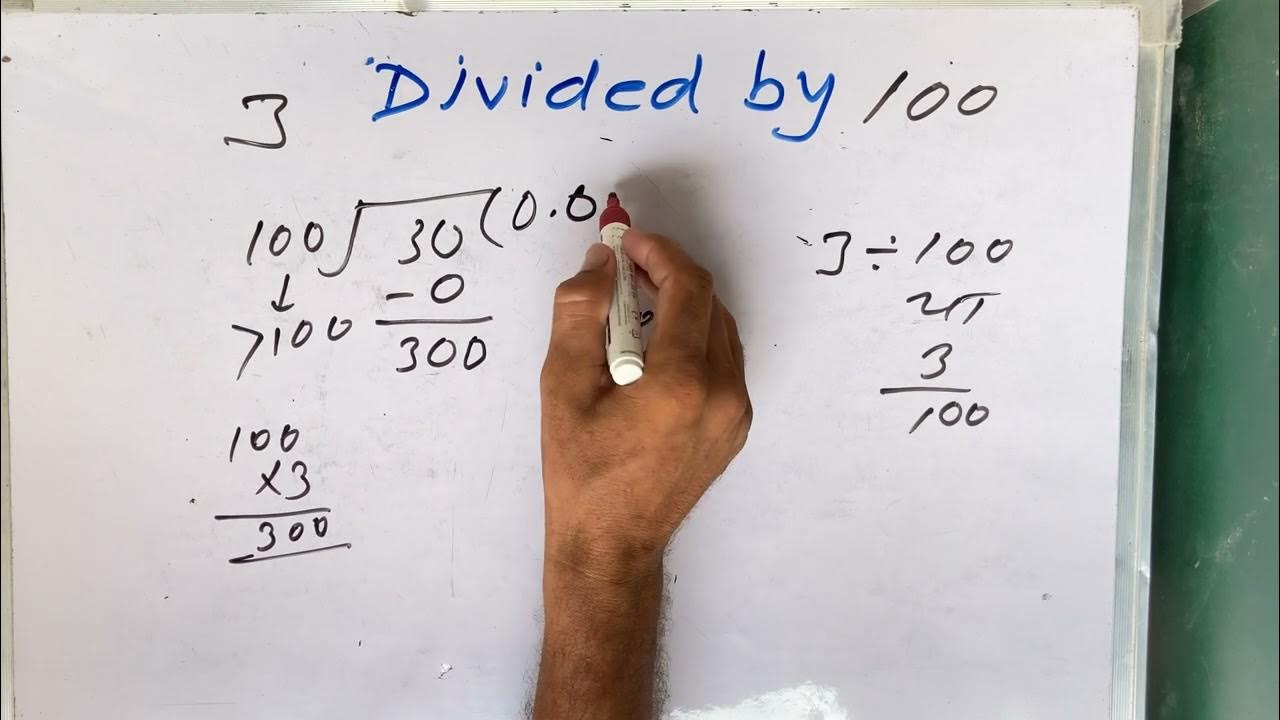 3 Divided by 100
100 30 ( 0.0
↓ - 0
>100 300
100
×3
300
3 ÷ 100
3
100